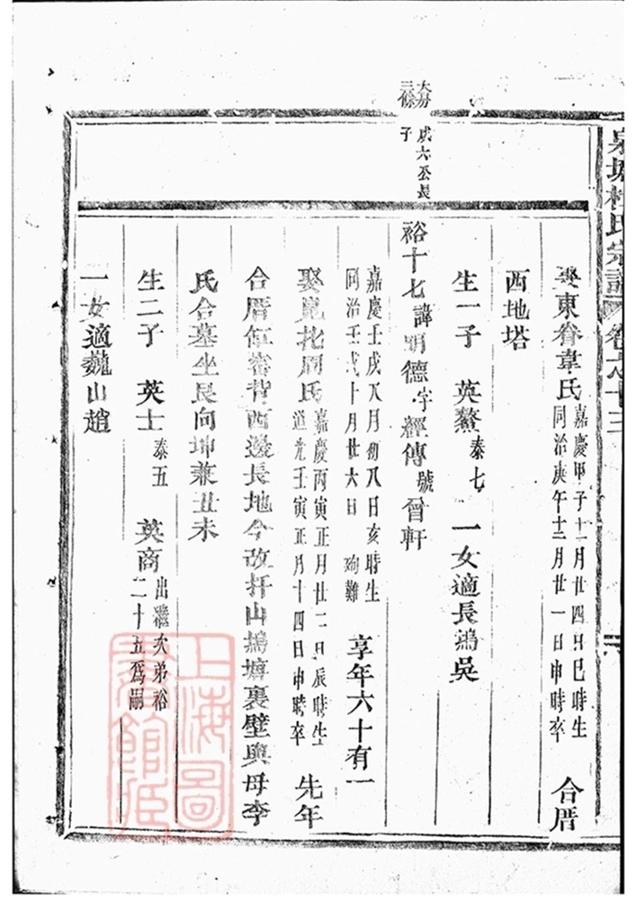 娶東眷韋氏 嘉慶甲子十一月廿四日巳時生 同治庚午十二月廿一日申時卒 合厝
西地塔
生一子 英鰲 泰七 一女適長鴻吳
大房三條 戊六公長子
裕十七諱明德字經傳號曾軒
嘉慶壬戌八月初八日亥時生 同治壬戌十月廿六日殉難 享年六十有一
娶 周氏 嘉慶丙寅正月廿二日辰時生 道光壬寅正月十四日申時卒 先年
合厝 背西邊長地今改扦山鴣塘裏壁與母李
氏合墓坐艮向坤兼丑未
生二子 英士 泰五 英商 出繼次弟裕二十五爲嗣
一女適巍山趙
上海圖書館藏